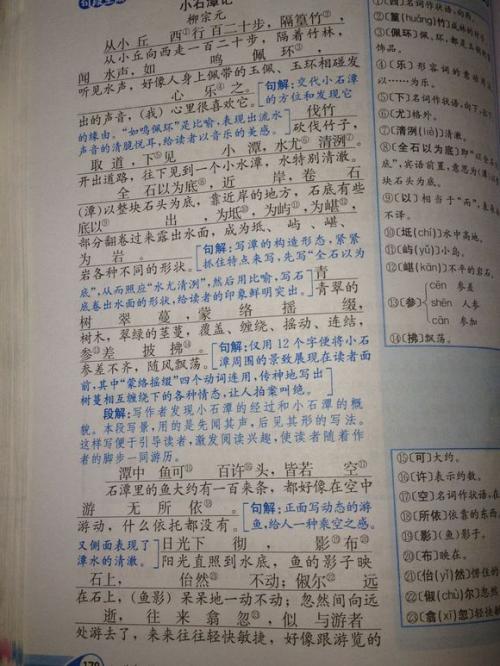 小石潭记
柳宗元
从小丘西①行百二十步,隔篁竹②,
从小丘向西走一百二十步,隔着竹林,
闻水声,如鸣佩环③,
听见水声,好像人身上佩带的玉佩、玉环相碰发
心乐④之。
出的声音,(我)心里很喜欢它。[句解:交代小石潭
的方位和发现它
的缘由。“如鸣佩环”是比喻,表现出流水
声音的清脆悦耳,给读者以音乐的美感。]
伐竹
砍伐竹子,
取道,下⑤见小潭,水尤⑥清洌⑦。
开出道路,往下见到一个小水潭,水特别清澈。
全石以为底⑧,近岸,卷石
(潭)以整块石头为底,靠近岸的地方,石底有些
底以⑨出,为坻⑩,为屿⑪,为嵁⑫,
部分翻卷过来露出水面,成为坻、屿、嵁、
为岩。
岩各种不同的形状。[句解:写潭的构造形态,紧紧
抓住特点来写,先写“全石以为
底”,从而照应“水尤清洌”,然后用比喻,写石
底卷出水面的形状,给读者的印象鲜明突出。]
青
青翠的
树翠蔓,蒙络摇缀,
树木,翠绿的茎蔓,覆盖、缠绕、摇动、连结,
参⑬差披拂⑭。
参差不齐,随风飘荡。[句解:仅用12个字便将小石
潭周围的景致展现在读者面
前,其中“蒙络摇缀”四个动词连用,传神地写出
树蔓相互缠绕下的各种情态,让人拍案叫绝。]
段解:写作者发现小石潭的经过和小石潭的概
貌。本段写景,用的是先闻其声,后见其形的写法。
这样写便于引导读者,激发阅读兴趣,使读者随着作
者的脚步一同游历。
潭中鱼可⑮百许⑯头,皆若空⑰
石潭里的鱼大约有一百来条,都好像在空中
游无所依⑱。
游动,什么依托都没有。[句解:正面写动态的游
鱼,给人一种乘空之感。
又侧面表现了
潭水的清澈。]
日光下彻,影⑲布⑳
阳光直照到水底,鱼的影子映
石上,佁然㉑不动;俶尔㉒远
在石上,(鱼影)呆呆地一动不动;忽然间向远
逝,往来翕忽㉓,似与游者
处游去了,来来往往轻快敏捷,好像跟游览的
170
①[西]名词作状语,向西。
②[篁(huáng)竹]成林的竹子。
③[佩环]佩、环,都是玉制的
饰品。
④(乐)形容词的意动用法,
以……为乐。
⑤[下]名词作状语,向下,往下
⑥[尤]格外。
⑦[清洌(liè)]清澈。
⑧(全石以为底)即“以全石
底”,宾语前置,意思为(潭)以
块石头为底。
⑨[以]相当于“而”,表修
不译。
⑩[坻(chí)]水中高地。
⑪[屿(yǔ)]小岛。
⑫[嵁(kān)]不平的岩石。
⑬(参) cēn 参差
shēn 人参
cān 参加
⑭[拂]飘荡。
⑮[可]大约。
⑯[许]表示约数。
⑰[空]名词作状语,在
⑱[所依]依靠的东西。
⑲[影](鱼)影子。
⑳[布]映在。
㉑[佁(yǐ)然]愣住的
㉒[俶(chù)尔]忽然
㉓[翕(xī)忽]轻快敏